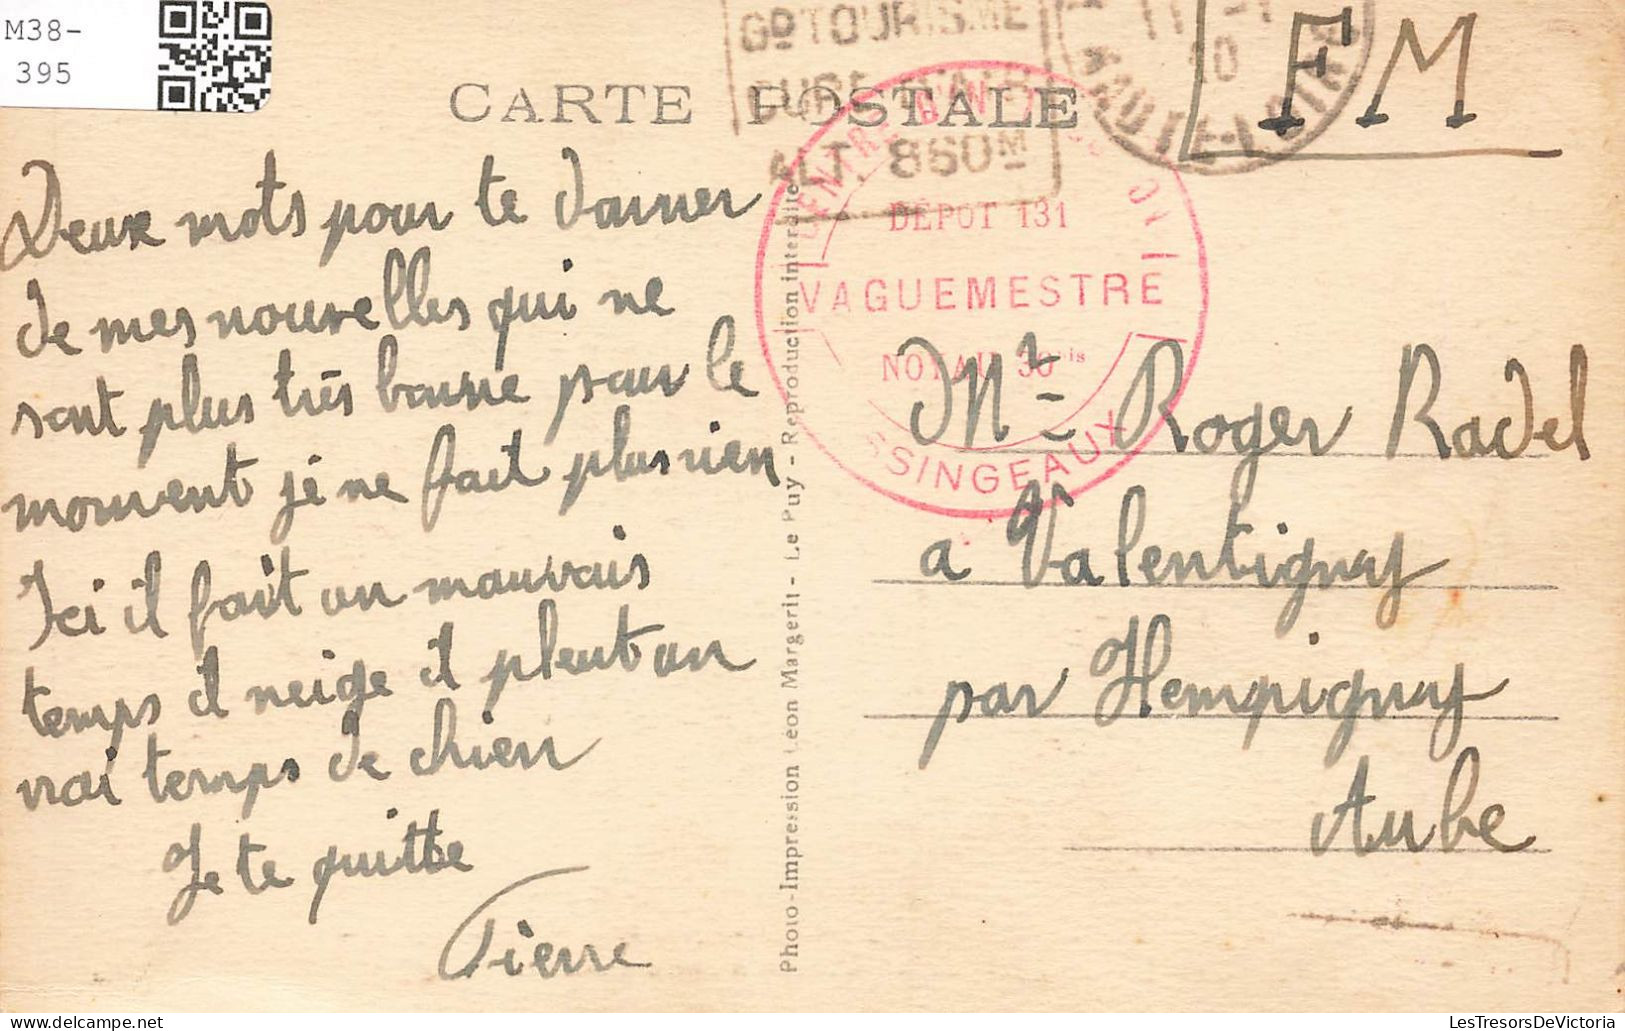 M38-
395
CARTE POSTALE
Gᴅ TOURISME
CURE D'AIR
ALT. 860ᴹ
HAUTE-LOIRE
FM
DÉPOT 131
VAGUEMESTRE
NOYAU 30 bis
SSINGEAUX
Deux mots pour te donner
de mes nouvelles qui ne
sont plus très bonne pour le
moment je ne fait plus rien
Ici il fait un mauvais
temps il neige il pleut un
vrai temps de chien
Je te quitte
Pierre
Photo-Impression Léon Margerit - Le Puy - Reproduction interdite
Mr Roger Radel
a Valentigny
par Hempigny
Aube
LesTresorsDeVictoria